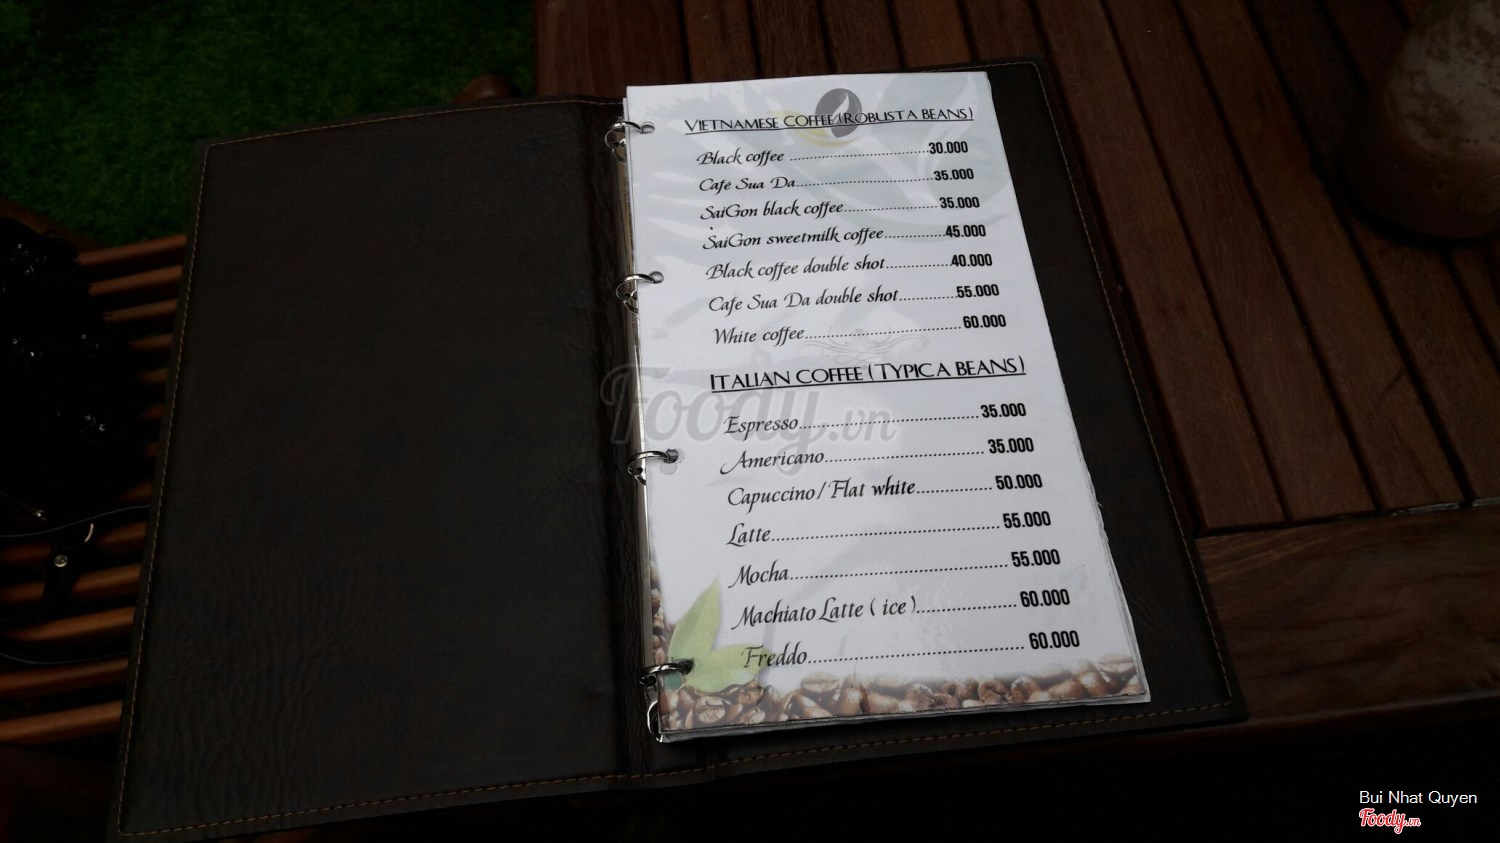 VIETNAMESE COFFEE (ROBUSTA BEANS)
Black coffee ........ 30.000
Cafe Sua Da ........ 35.000
SaiGon black coffee ........ 35.000
SaiGon sweetmilk coffee ........ 45.000
Black coffee double shot ........ 40.000
Cafe Sua Da double shot ........ 55.000
White coffee ........ 60.000
ITALIAN COFFEE (TYPICA BEANS)
Espresso ........ 35.000
Americano ........ 35.000
Capuccino/Flat white ........ 50.000
Latte ........ 55.000
Mocha ........ 55.000
Machiato Latte ( ice ) ........ 60.000
Freddo ........ 60.000
Foody.vn
Bui Nhat Quyen
Foody.vn